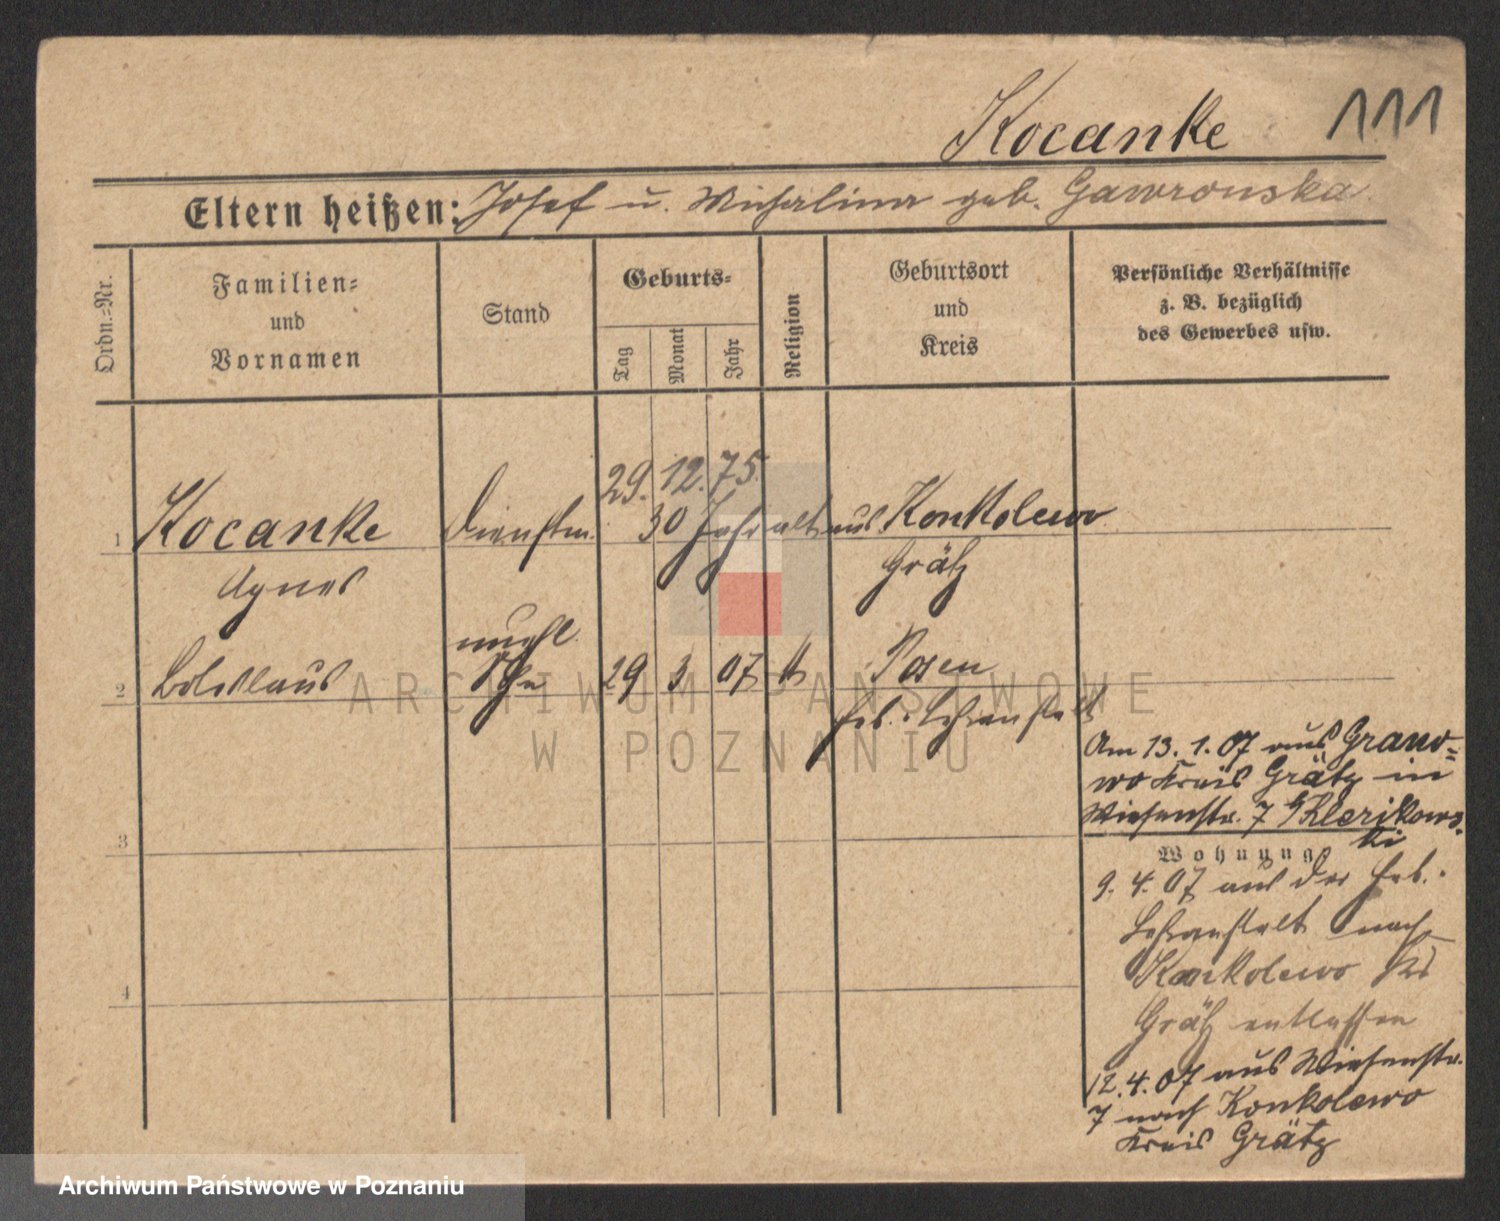 Kocanke 111
Eltern heißen: Josef u. Michalina geb. Gawronska
Ordn.-Nr.
Familien-
und
Vornamen
Stand
Geburts-
Tag
Monat
Jahr
Religion
Geburtsort
und
Kreis
Persönliche Verhältnisse
z. B. bezüglich
des Gewerbes usw.
29. 12. 75.
1 Kocanke Dienstm. 30 Jahr alt aus Konkolewo
Agnes Grätz
unehl.
2 Boleslaus Sohn 29 3 07 k Posen
Heb. Lehranstalt
Am 13. 1. 07 aus Grano-
wo Kreis Grätz in
Wiesenstr. 7 b/Klerikows-
ki
3
Wohnung
9. 4. 07 aus der Heb.-
Lehranstalt nach
Konkolewo Krs
4
Grätz entlassen
12. 4. 07 aus Wiesenstr.
7 nach Konkolewo
Kreis Grätz
ARCHIWUM PAŃSTWOWE
W POZNANIU
Archiwum Państwowe w Poznaniu